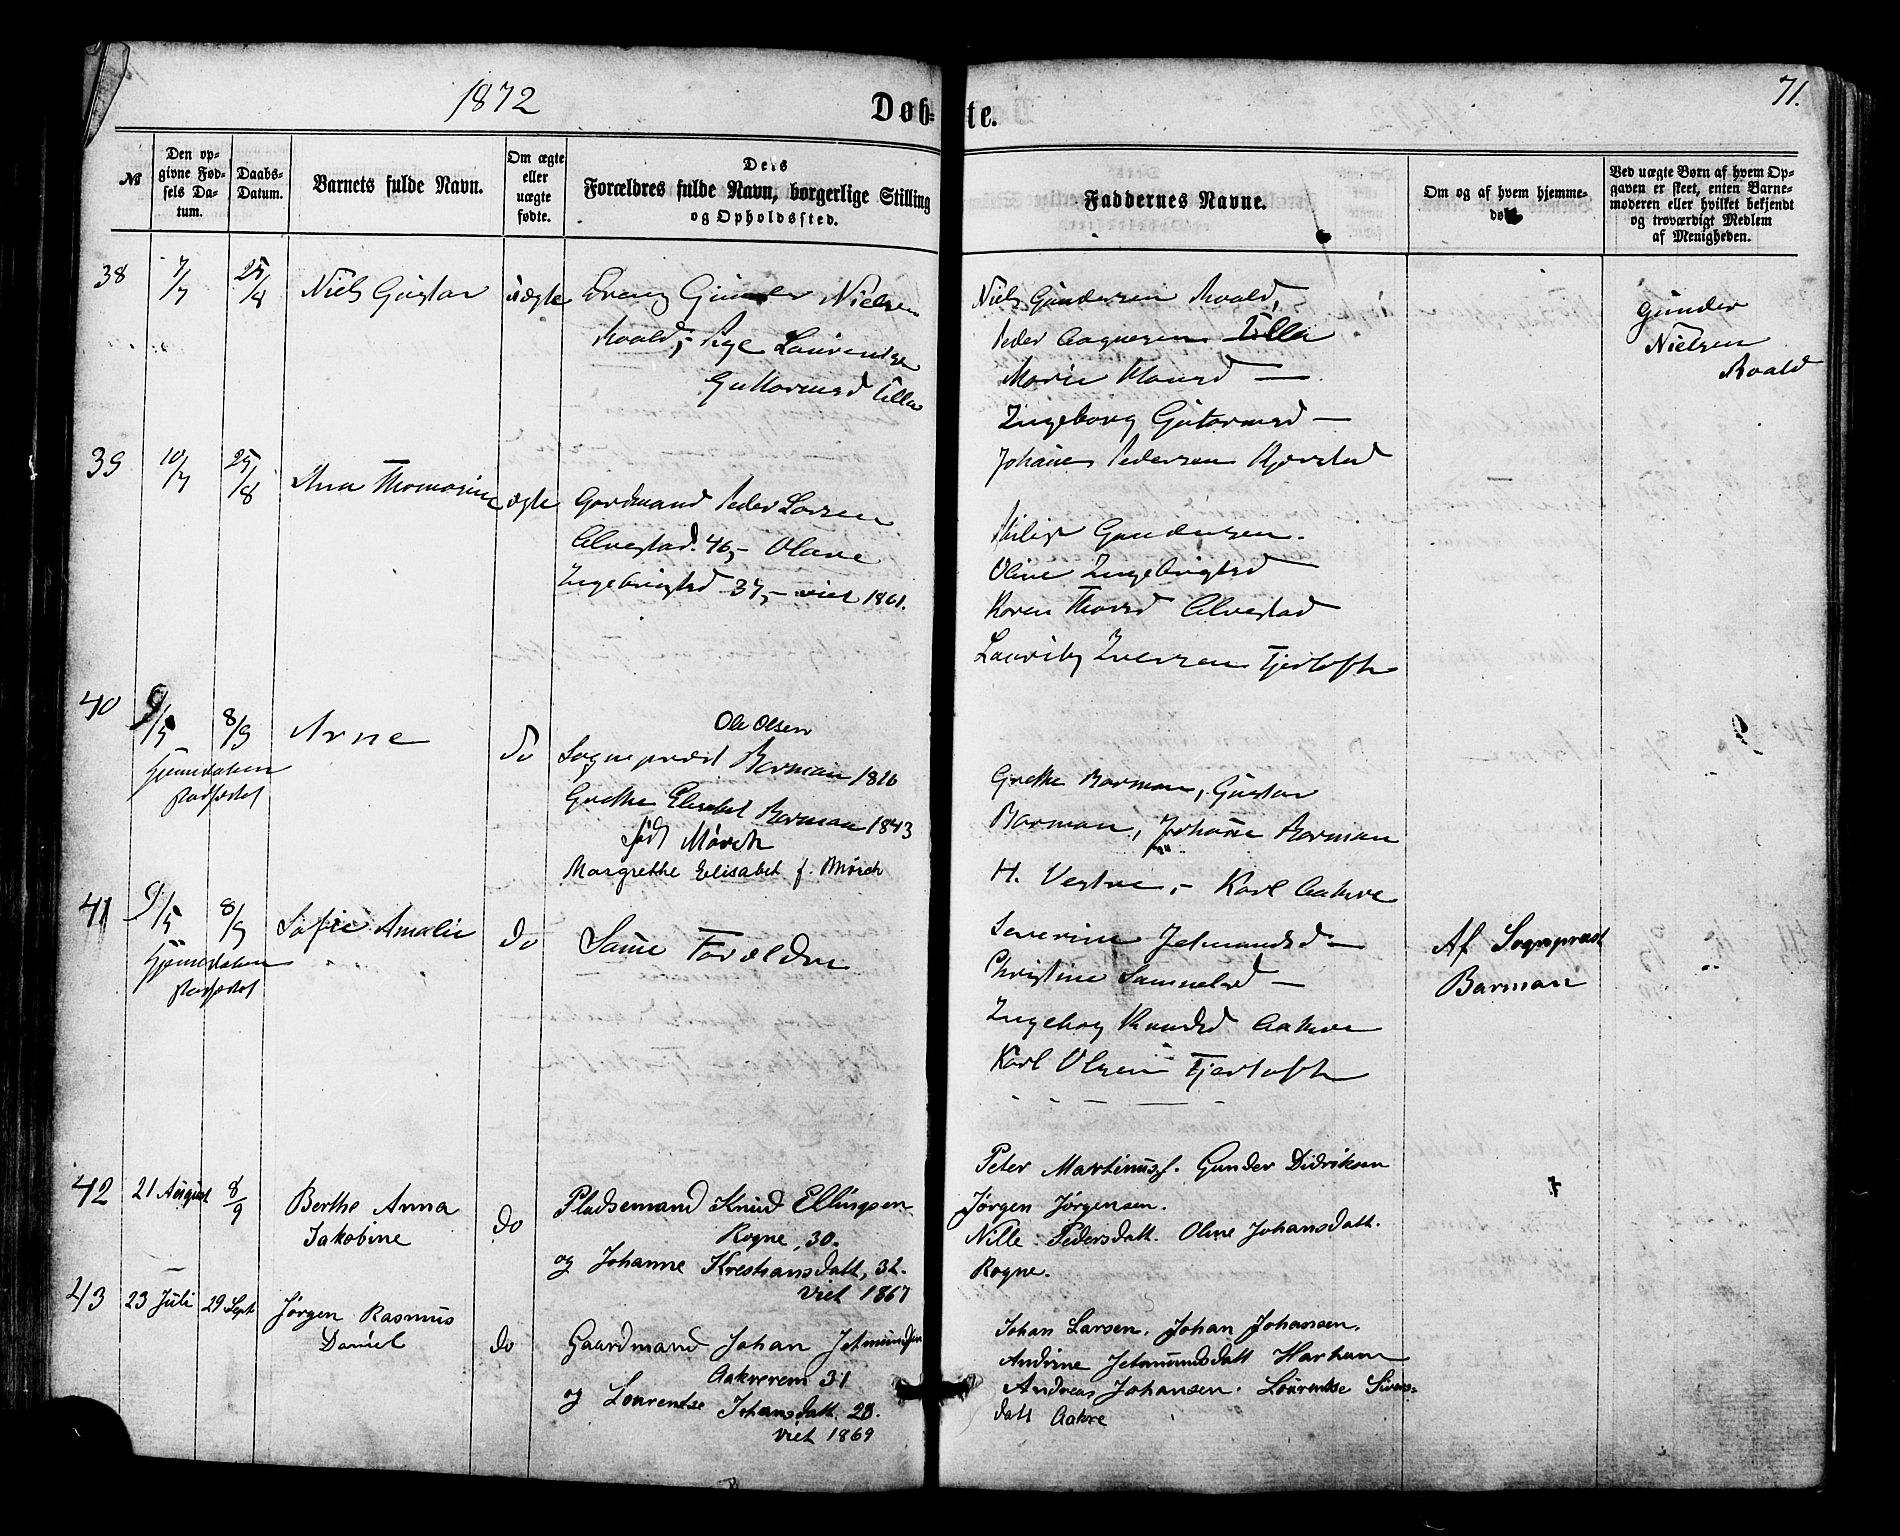 1872
Døb=
te.
71.
№
Den op-
givne Fød-
sels Da-
tum.
Daabs-
Datum.
Barnets fulde Navn.
Om ægte
eller
uægte
fødte.
Dets
Forældres fulde Navn, borgerlige Stilling
og Opholdssted.
Faddernes Navne.
Om og af hvem hjemme-
Ved uægte Børn af hvem Op-
gaven er skeet, enten Barne-
moderen eller hvilket bekjendt
og troværdigt Medlem
af Menigheden.
38
7/7
25/8
Niels Gustav
uægte
Gunder Nielsen
Roald, Pige Laurentze
Guttormsd Ulla
Niels Gundersen Roald,
Peder Aagesen Ulla
Marie Hansd —
Ingeborg Gutormsd —
Johannes Pedersen Kjerstad
Gunder
Nielsen
Roald
39
10/7
25/8
Ana Thomasine
ægte
Gardmand Peder Larsen
Alvestad. 46,- Olave
Ingebrigtsd 37,- viet 1861.
Philip Gundersen.
Oline Ingebrigtsd
Karen Thorsd Alvestad
Lauritz Iversen Fjertoft
40
9/5
8/9
Hjemmedøben
Stadfæstet
Arne
do
Ole Olsen
Sogneprest Barman 1826
Grethe Elisabet Barman 1843
født Mørch
Margrethe Elisabet f. Mørch
Grethe Barman, Gustav
Barman, Johanne Barman
H. Vestre,- Karl Aakre
41
9/5
8/9
Hjemmedøben
Stadfæstet
Sofie Amalie
do
Samme Forældre
Severine Jetmundsd —
Christine Samuelsd —
Ingebor Knudsd Aakre
Karl Olsen Fjertoft
Af Sogneprest
Barman
42
21 August
8/9
Berthe Anna
Jakobine
do
Pladsemand Knud Ellingsen
Rogne, 30.
og Johanne Kristiansdatt, 32.
viet 1867
Peter Martinuss. Gunder Didriksen
Jørgen Jørgensen.
Nille Pedersdatt. Oline Johansdatt.
Rogne.
43
23 Juli
29 Sept
Jørgen Rasmus
Daniel
do
Gaardmand Johan Jetmundsen
Aakrerem 31
og Lourentse Johansdatt. 28.
viet 1869
Johan Larsen. Johan Johansen.
Andrine Jetmundsdatt Harham
Andreas Johansen. Lourentse Sivers-
datt Aakre